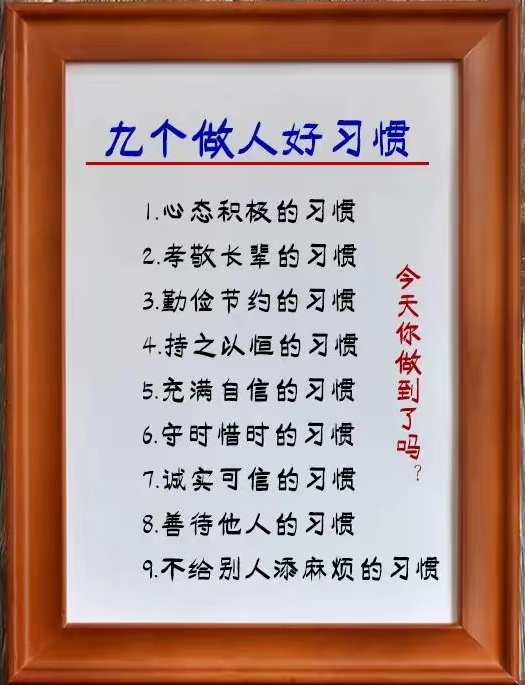 九个做人好习惯
1.心态积极的习惯
2.孝敬长辈的习惯
3.勤俭节约的习惯
4.持之以恒的习惯
5.充满自信的习惯
6.守时惜时的习惯
7.诚实可信的习惯
8.善待他人的习惯
9.不给别人添麻烦的习惯
今天你做到了吗?